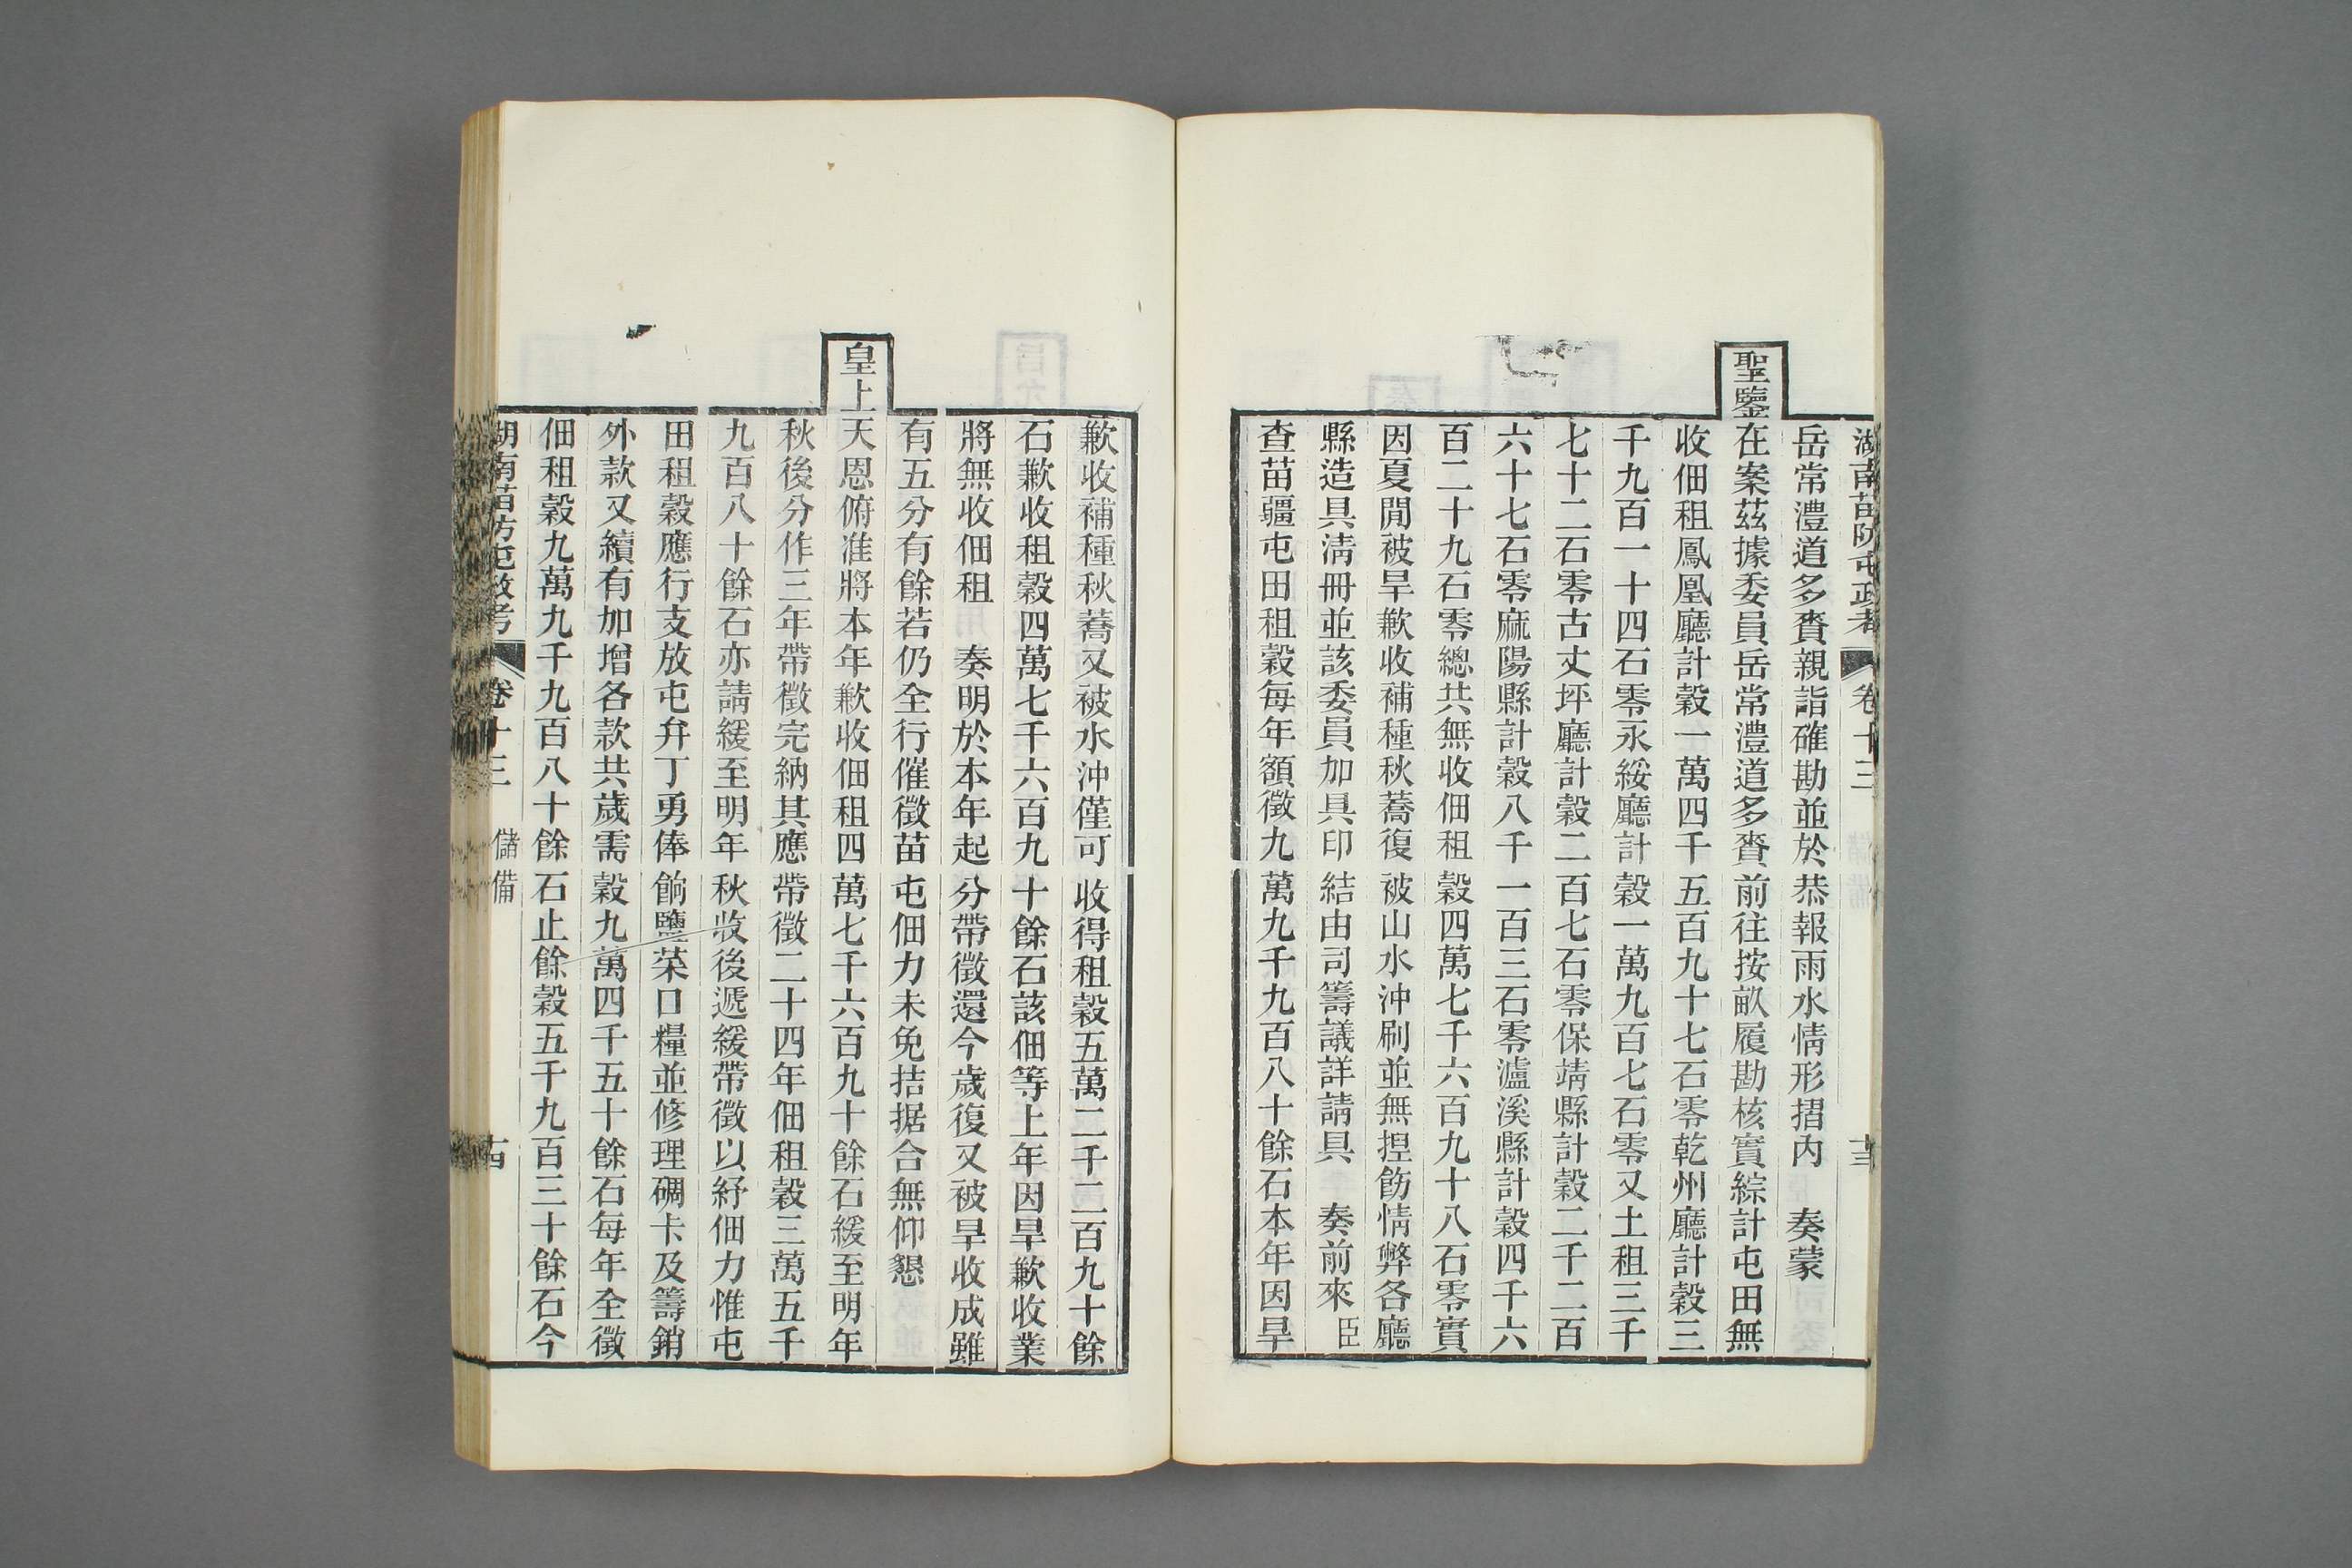 湖南苗防屯政考 卷十三 十三
岳常澧道多賚親詣確勘並於恭報雨水情形摺內 奏蒙
聖鑒在案茲據委員岳常澧道多賚前往按畝履勘核實綜計屯田無
收佃租鳳凰廳計穀一萬四千五百九十七石零乾州廳計穀三
千九百一十四石零永綏廳計穀一萬九百七石零又土租三千
七十二石零古丈坪廳計穀二百七石零保靖縣計穀二千二百
六十七石零麻陽縣計穀八千一百三石零瀘溪縣計穀四千六
百二十九石零總共無收佃租穀四萬七千六百九十八石零實
因夏閒被旱歉收補種秋蕎復被山水沖刷並無揑飭情弊各廳
縣造具淸冊並該委員加具印結由司籌議詳請具 奏前來臣
查苗疆屯田租穀每年額徵九萬九千九百八十餘石本年因旱
歉收補種秋蕎又被水沖僅可收得租穀五萬二千二百九十餘
石歉收租穀四萬七千六百九十餘石該佃等上年因旱歉收業
將無收佃租 奏明於本年起分帶徵還今歲復又被旱收成雖
有五分有餘若仍全行催徵苗屯佃力未免拮据合無仰懇
皇上天恩俯准將本年歉收佃租四萬七千六百九十餘石緩至明年
秋後分作三年帶徵完納其應帶徵二十四年佃租穀三萬五千
九百八十餘石亦請緩至明年秋收後遞緩帶徵以紓佃力惟屯
田租穀應行支放屯弁丁勇俸餉鹽菜口糧並修理碉卡及籌銷
外款又續有加增各款共歲需穀九萬四千五十餘石每年全徵
佃租穀九萬九千九百八十餘石止餘穀五千九百三十餘石今
湖南苗防屯政考 卷十三 儲備 十四